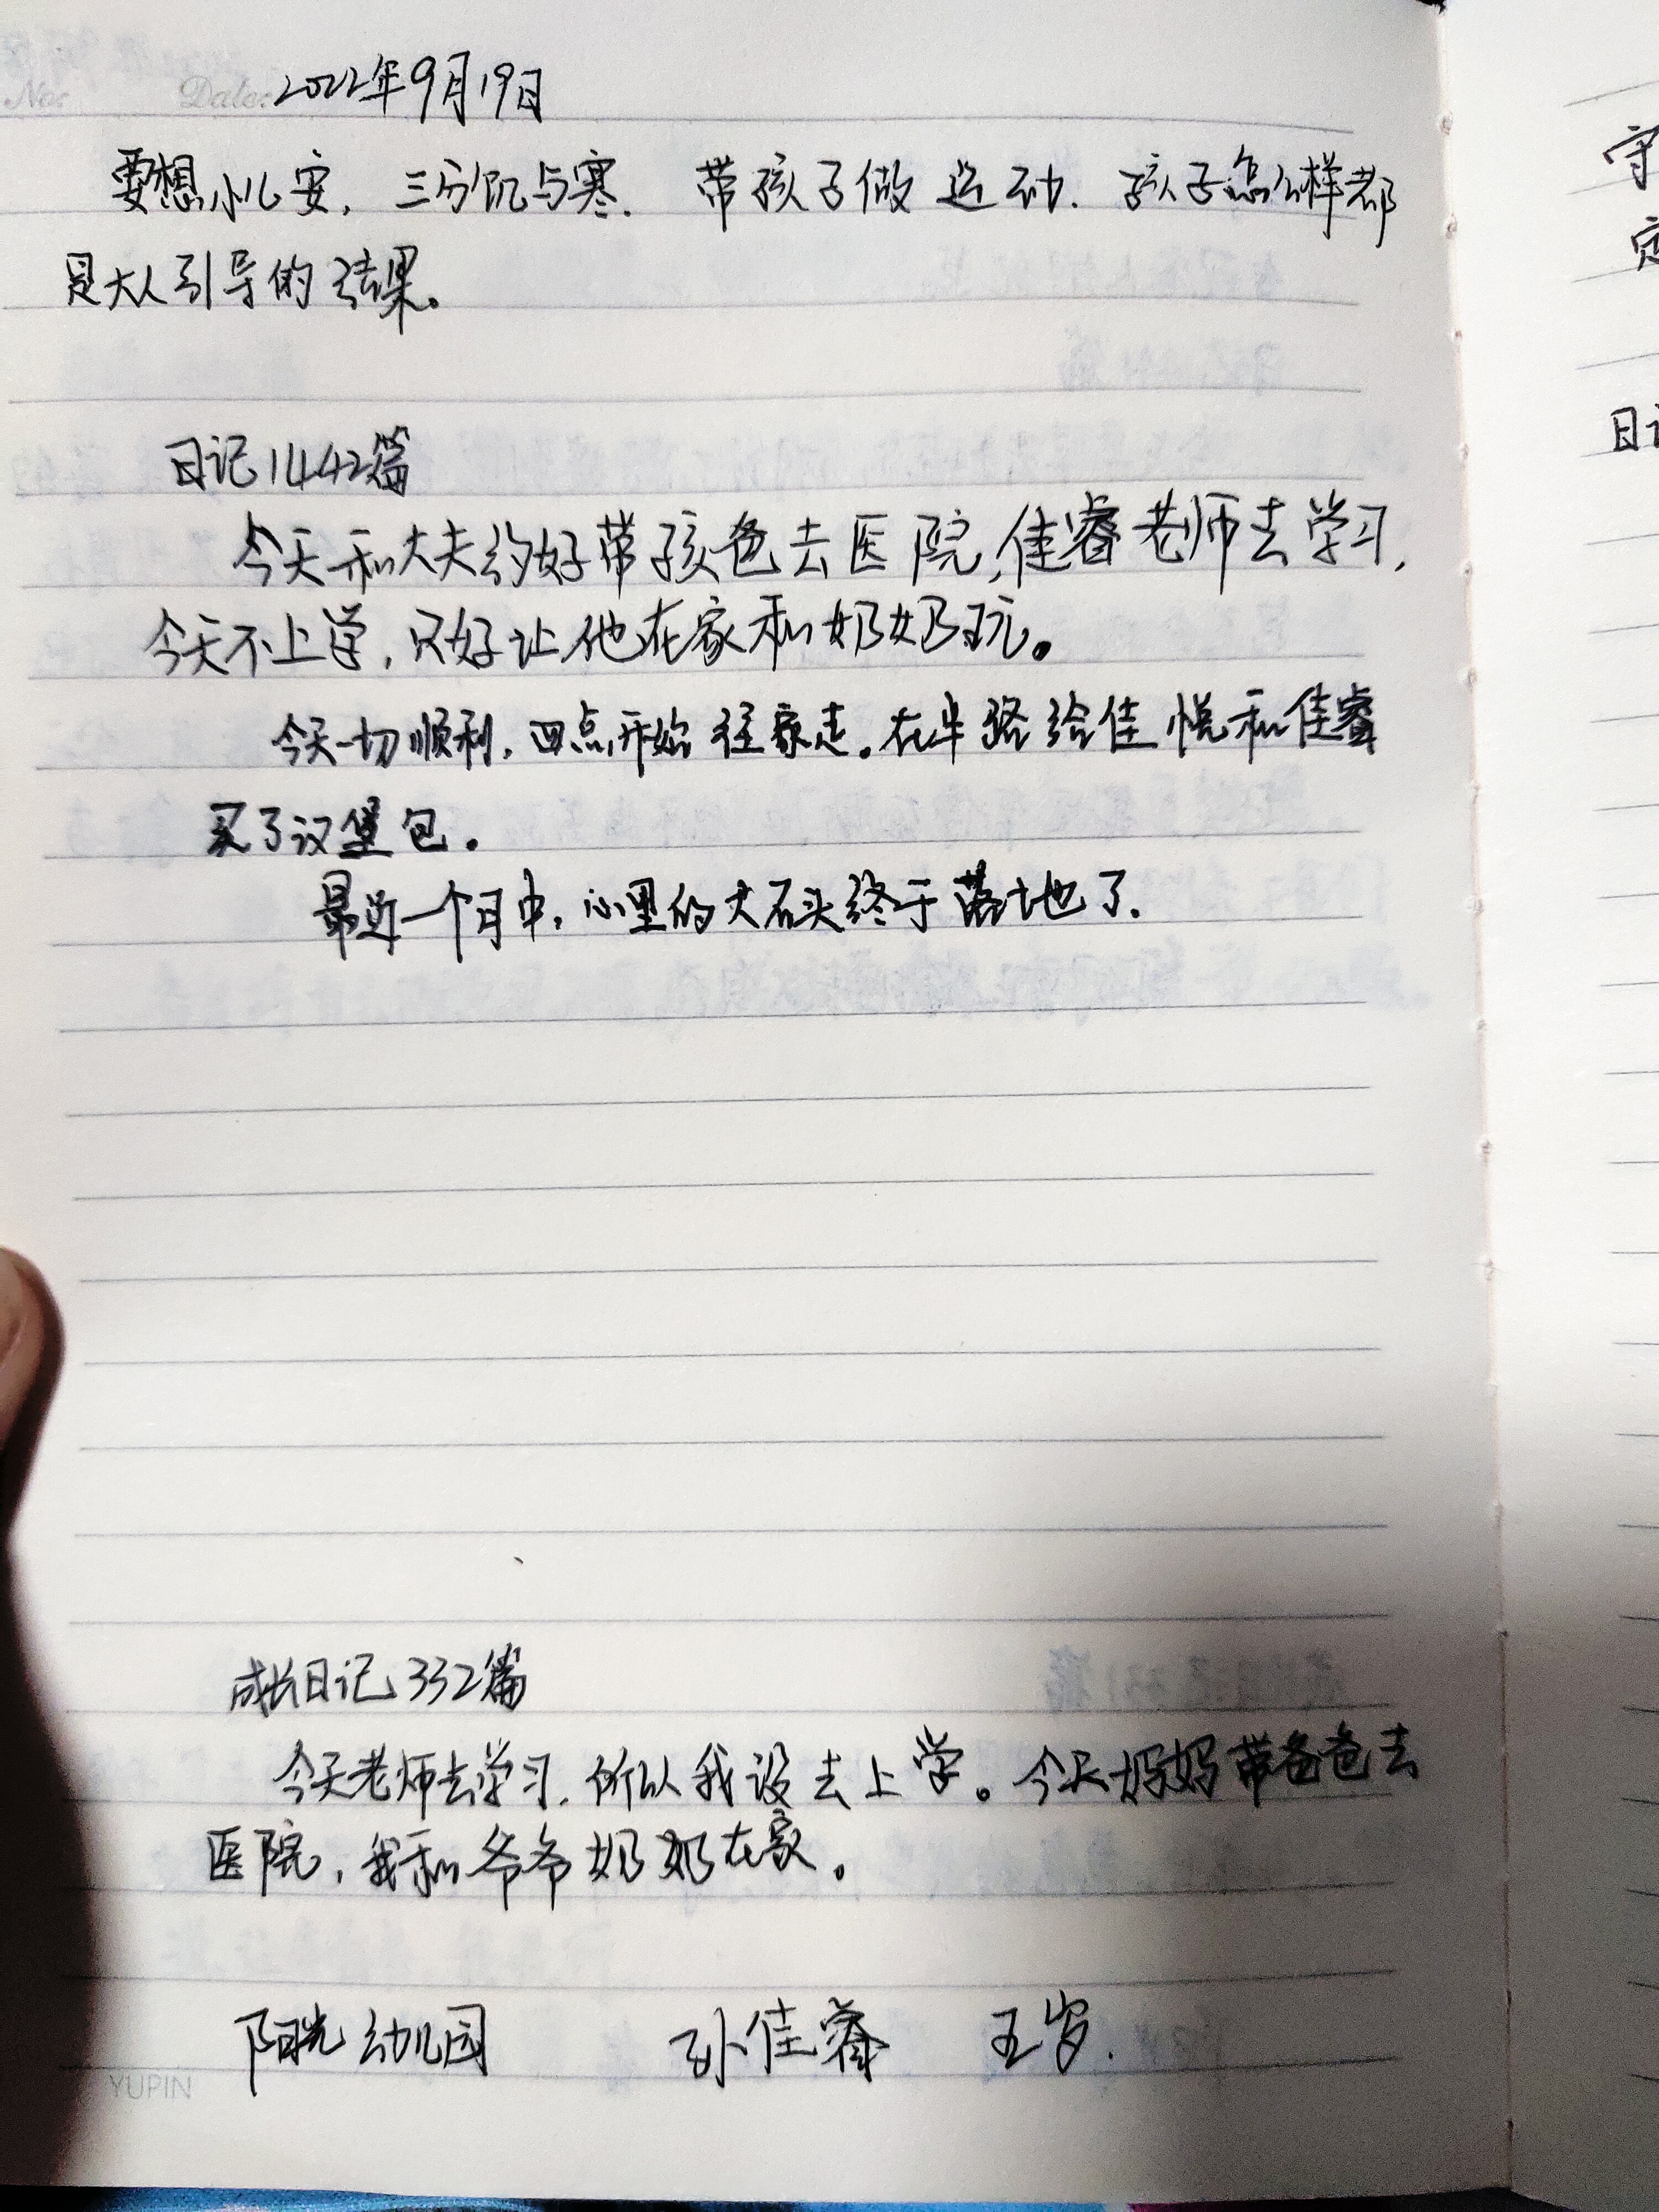 No: Date: 2022年9月19日
要想小儿安,三分饥与寒. 带孩子做运动.孩子怎么样都
是大人引导的结果。
日记1442篇
今天和大夫约好带孩爸去医院,佳睿老师去学习,
今天不上学,只好让他在家和奶奶玩。
今天一切顺利,四点开始往家走。在半路给佳悦和佳睿
买了汉堡包.
最近一个月中,心里的大石头终于落地了.
成长日记332篇
今天老师去学习.所以我没去上学。今天妈妈带爸爸去
医院,我和爷爷奶奶在家。
阳光幼儿园 孙佳睿 五岁.
YUPIN
守
定
日记